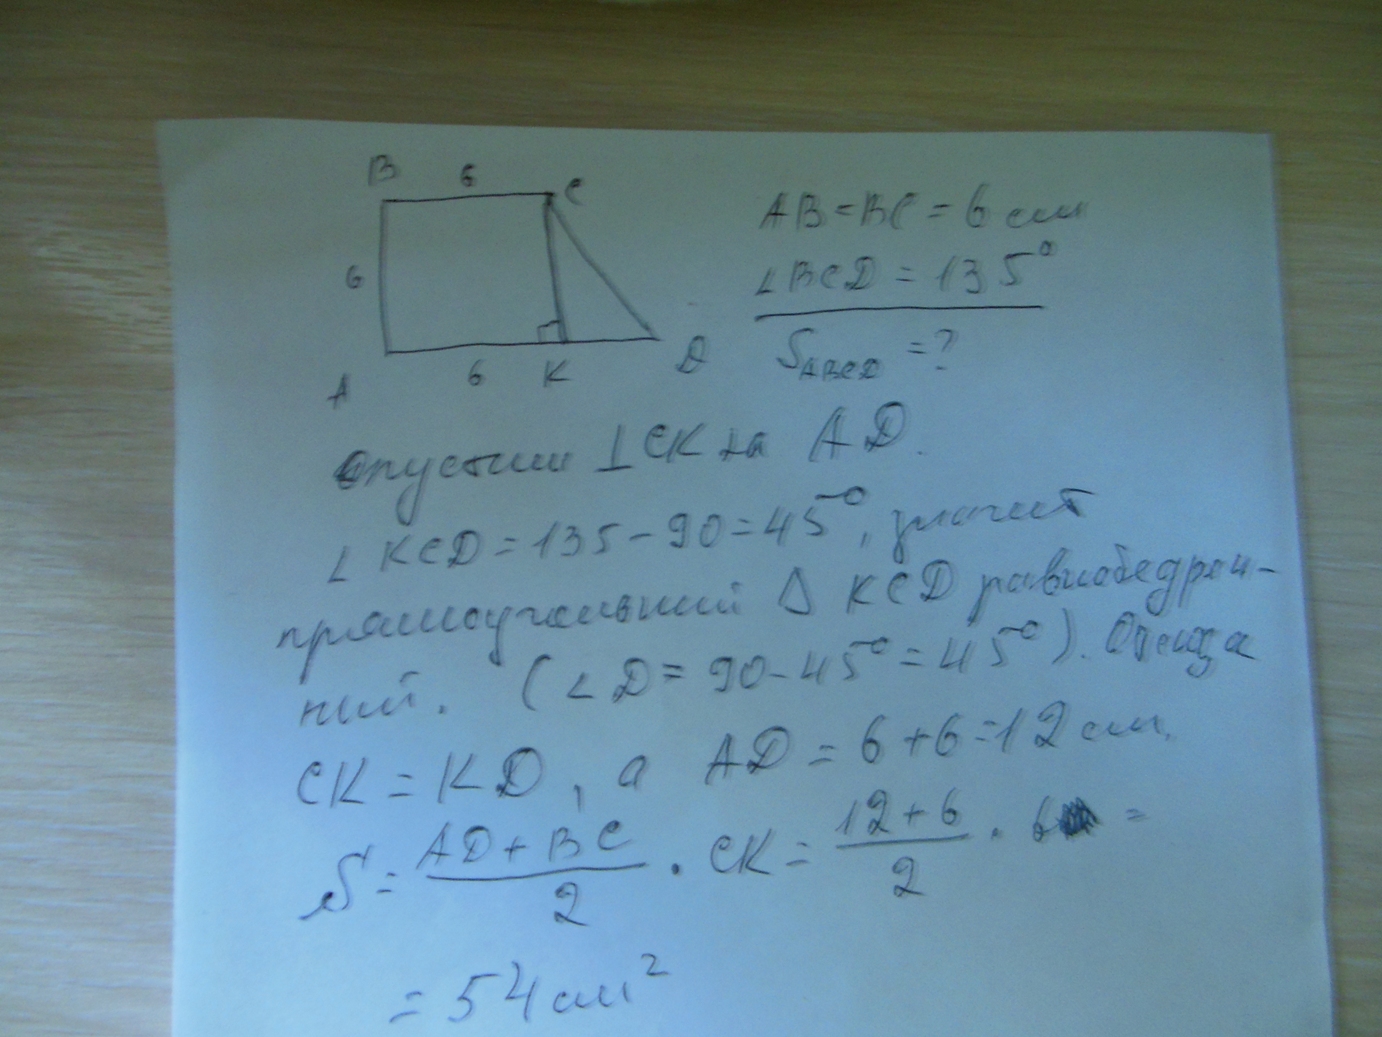 B 6 C
6
A 6 K D
AB = BC = 6 см
∠BCD = 135°
S_ABCD = ?
Опустим ⊥ CK на AD.
∠KCD = 135 - 90 = 45°, значит
прямоугольный Δ KCD равнобедрен-
ный. (∠D = 90 - 45° = 45°). Отсюда
CK = KD, а AD = 6 + 6 = 12 см.
S = (AD + BC)/2 · CK = (12 + 6)/2 · 6 =
= 54 см²